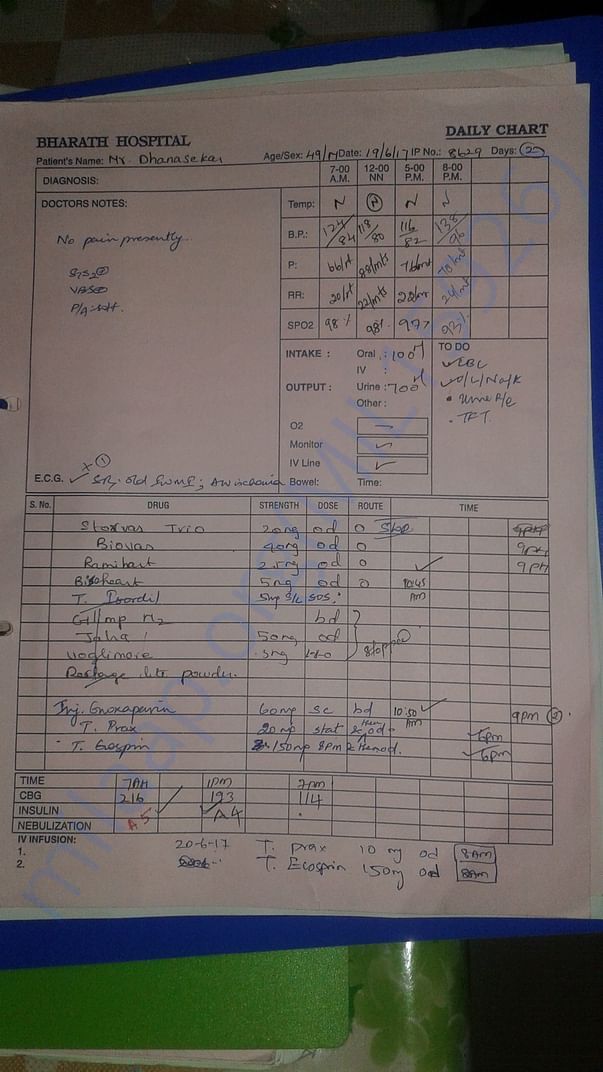 BHARATH HOSPITAL
DAILY CHART
Patient's Name: Mr. Dhanasekar Age/Sex: 49/M Date: 19/6/17 IP No.: 8629 Days: 2
DIAGNOSIS: 7-00 A.M. 12-00 NN 5-00 P.M. 8-00 P.M.
DOCTORS NOTES:
Temp: N N N N
B.P.: 124/84 118/80 116/82 138/90
P: 66/mt 88/mts 76/mt 78/mt
RR: 20/mt 22/mts 22/mt 24/mt
SPO2 98% 98% 97% 93%
No pain presently..
S1S2
P/A: soft.
INTAKE : Oral : 100
IV :
OUTPUT : Urine : 700
Other :
TO DO
Urine R/e
TFT
O2
Monitor
IV Line
E.C.G. Bowel: Time:
S. No. DRUG STRENGTH DOSE ROUTE TIME
Storvas Trio 20mg od o Stop 9PM
Biovas 40mg od o 9PM
Ramihart 2.5mg od o 9PM
Bisoheart 5mg od o 10:45 AM
T. Isordil 5mg S/L SOS.
Glimp M2 bd
Jalra 50mg od stopped
Recharge lite powder.
Inj. Enoxaparin 60mg sc bd 10:50 AM 9pm 2
T. Prax 20mg stat then od 6pm
T. Ecospin 150mg 8PM then od. 6pm
TIME 7AM 1pm 7pm
CBG 216 193 114
INSULIN A5 A4
NEBULIZATION
IV INFUSION: 20-6-17 T. Prax 10 mg od 8AM
1.
2. T. Ecosprin 150mg od 8am
milaap.org